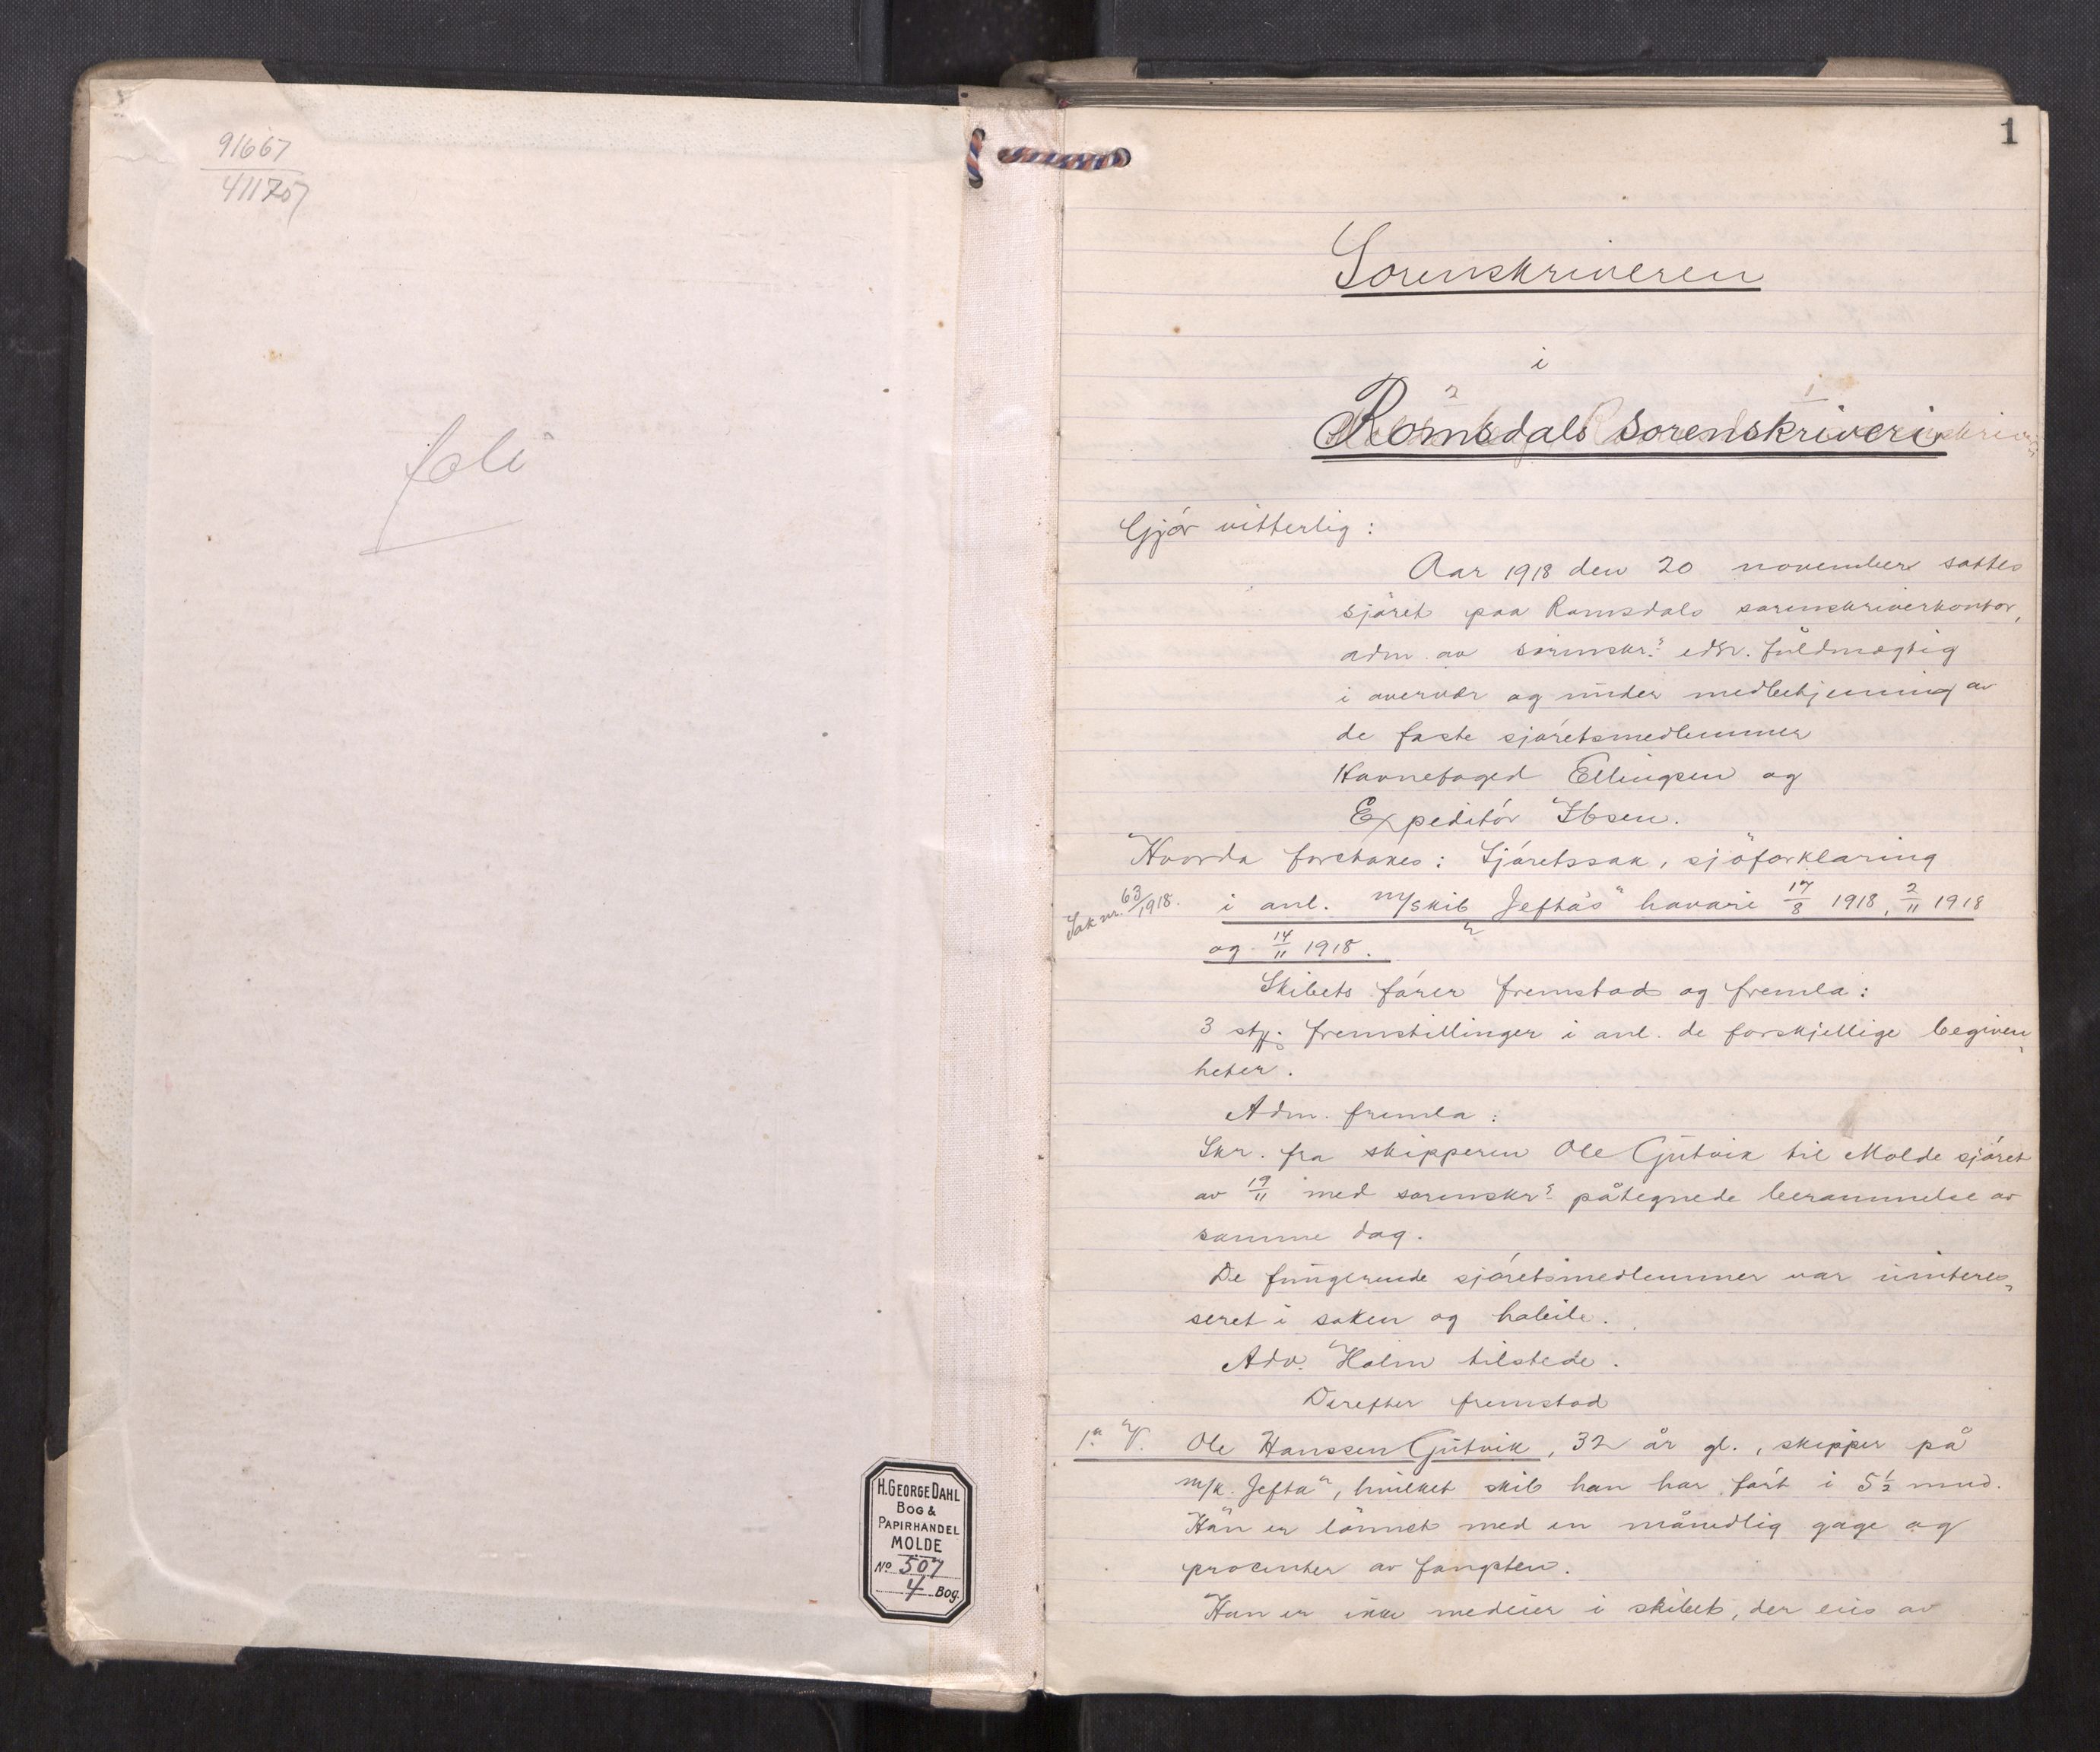 91667
411707
foli
H. GEORGE DAHL
BOG &
PAPIRHANDEL
MOLDE
No 507
4 BOG.
1
Sorenskriveren
i
Romsdals sorenskriveri
Gjör vitterlig:
Aar 1918 den 20 november sattes
sjöret paa Romsdals sorenskriverkontor,
adm. av sorenskr.s edsv. fuldmægtig
i overvær og under medbetjening av
de faste sjöretsmedlemmer
Havnefoged Ellingsen og
Expeditör Ibsen.
Hvorda foretokes: Sjöretssak, sjöforklaring
Sak nr. 63/1918.
i anl. m/skib "Jefta's" havari 17/8 1918, 2/11 1918
og 14/11 1918.
Skibets förer fremstod og fremla:
3 stk. fremstillinger i anl. de forskjellige begiven-
heter.
Adm. fremla:
Skr. fra skipperen Ole Gutvik til Molde sjöret
av 19/11 med sorenskr.s påtegnede berammelse av
samme dag.
De fungerende sjöretsmedlemmer var uinteres-
seret i saken og habile.
Adv. Holm tilstede.
Derefter fremstod
1. V. Ole Hanssen Gutvik, 32 år gl., skipper på
m/k. "Jefta", hvilket skib han har fört i 5 1/2 mnd.
Han er lönnet med en månedlig gage og
procenter av fangsten.
Han er ikke medeier i skibet, der eies av